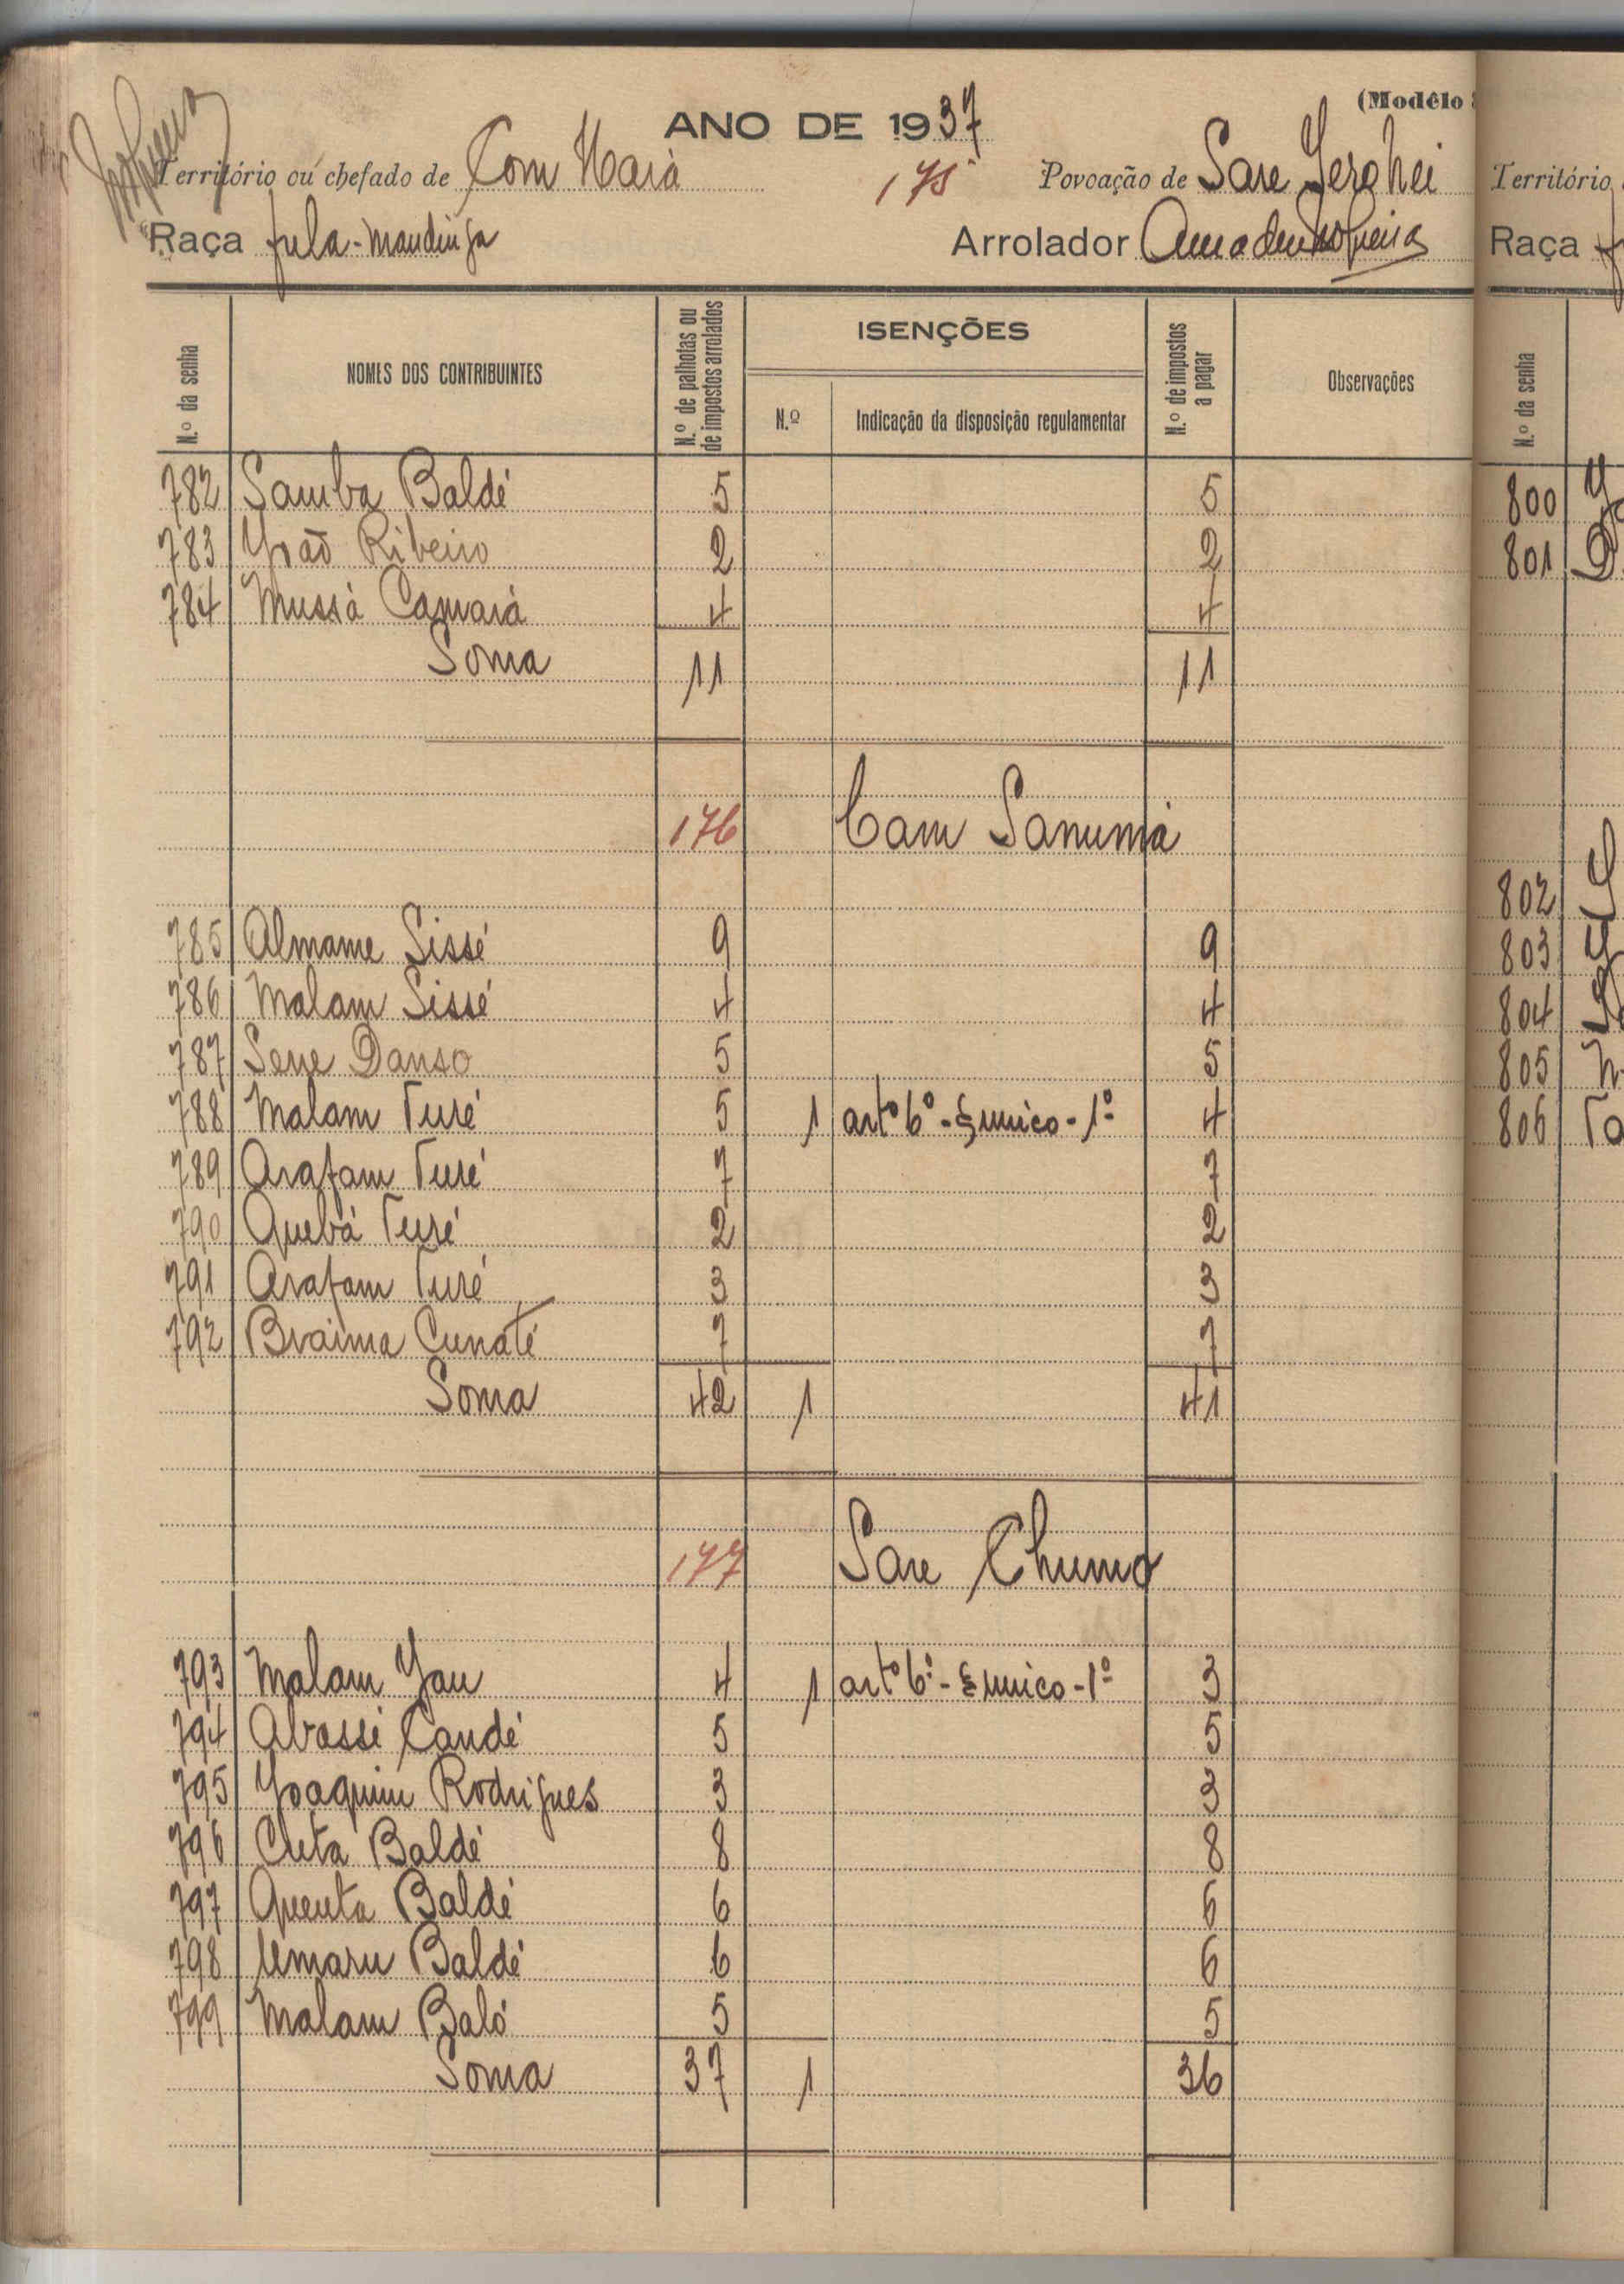 (Modêlo
ANO DE 1937
Território ou chefado de Com Hará 175 Povoação de Sare Gero hei
Raça fula-mandinga Arrolador Amadeu Nogueira
N.º da senha NOMES DOS CONTRIBUINTES N.º de palhotas ou de impostos arrolados ISENÇÕES N.º Indicação da disposição regulamentar N.º de impostos a pagar Observações
782 Samba Baldé 5 5
783 João Ribeiro 2 2
784 Mussá Camará 4 4
Soma 11 11
176 Cam Sanumá
785 Almame Sissé 9 9
786 Malam Sissé 4 4
787 Sene Danso 5 5
788 Malam Turé 5 1 artº 6º - § unico - 1º 4
789 Arafam Turé 7 7
790 Quebá Turé 2 2
791 Arafam Turé 3 3
792 Braima Cunaté 7 7
Soma 42 1 41
177 Sare Chumo
793 Malam Jau 4 1 artº 6º - § unico - 1º 3
794 Abassi Candé 5 5
795 Joaquim Rodrigues 3 3
796 Cuta Baldé 8 8
797 Quenta Baldé 6 6
798 Umaru Baldé 6 6
799 Malam Baló 5 5
Soma 37 1 36
Território
Raça
N.º da senha
800
801
802
803
804
805
806